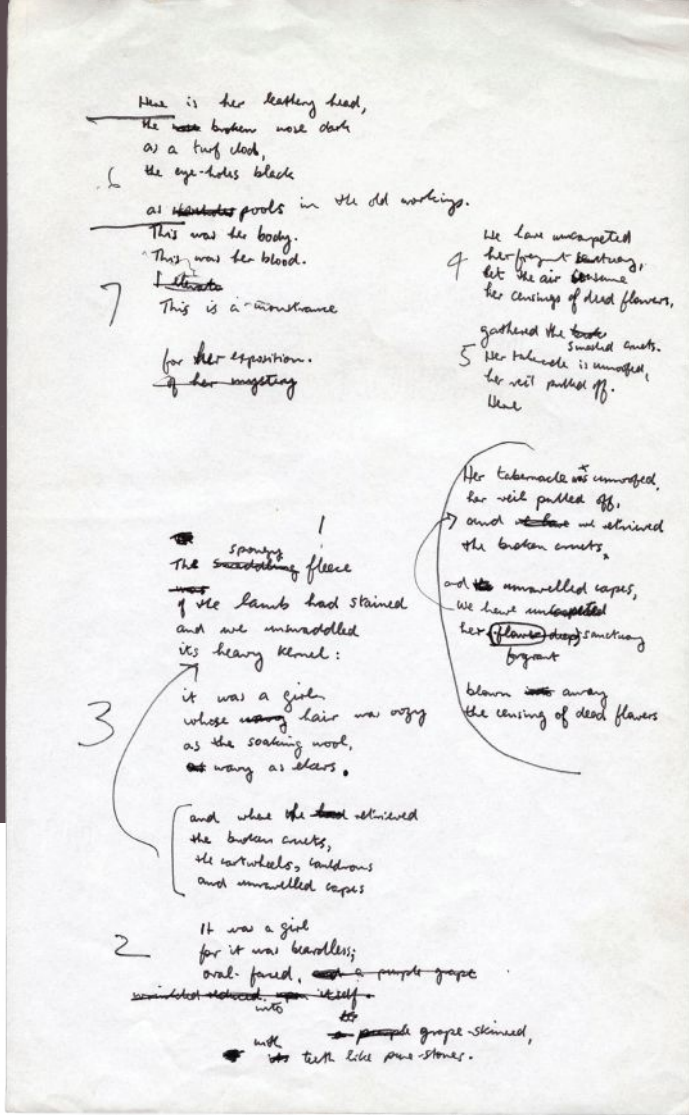 Here is her leathery head,
the broken nose dark
as a turf clod,
6
the eye-holes black
as pools in the old workings.
This was her body.
This was her blood.
I elevate
7
This is a monstrance
for her exposition.
of her mystery
We have uncarpeted
4
her fragrant sanctuary,
let the air consume
her censings of dead flowers,
gathered the
smashed cruets.
5
Her tabernacle is unroofed,
her veil pulled off.
Here
Her tabernacle was unroofed,
her veil pulled off,
and we retrieved
the broken cruets,
and unravelled capes,
we have uncarpeted
her flower deep sanctuary
fragrant
blown away
the censing of dead flowers
1
spongy
The swaddling fleece
was
of the lamb had stained
and we unswaddled
its heavy kernel:
3
it was a girl
whose wavy hair was oozy
as the soaking wool,
wavy as elvers.
and where the had retrieved
the broken cruets,
the cartwheels, cauldrons
and unravelled capes
2
It was a girl
for it was beardless;
oval-faced, a purple grape
wrinkled reduced upon itself.
into
a purple grape-skinned,
with
teeth like pine-stones.